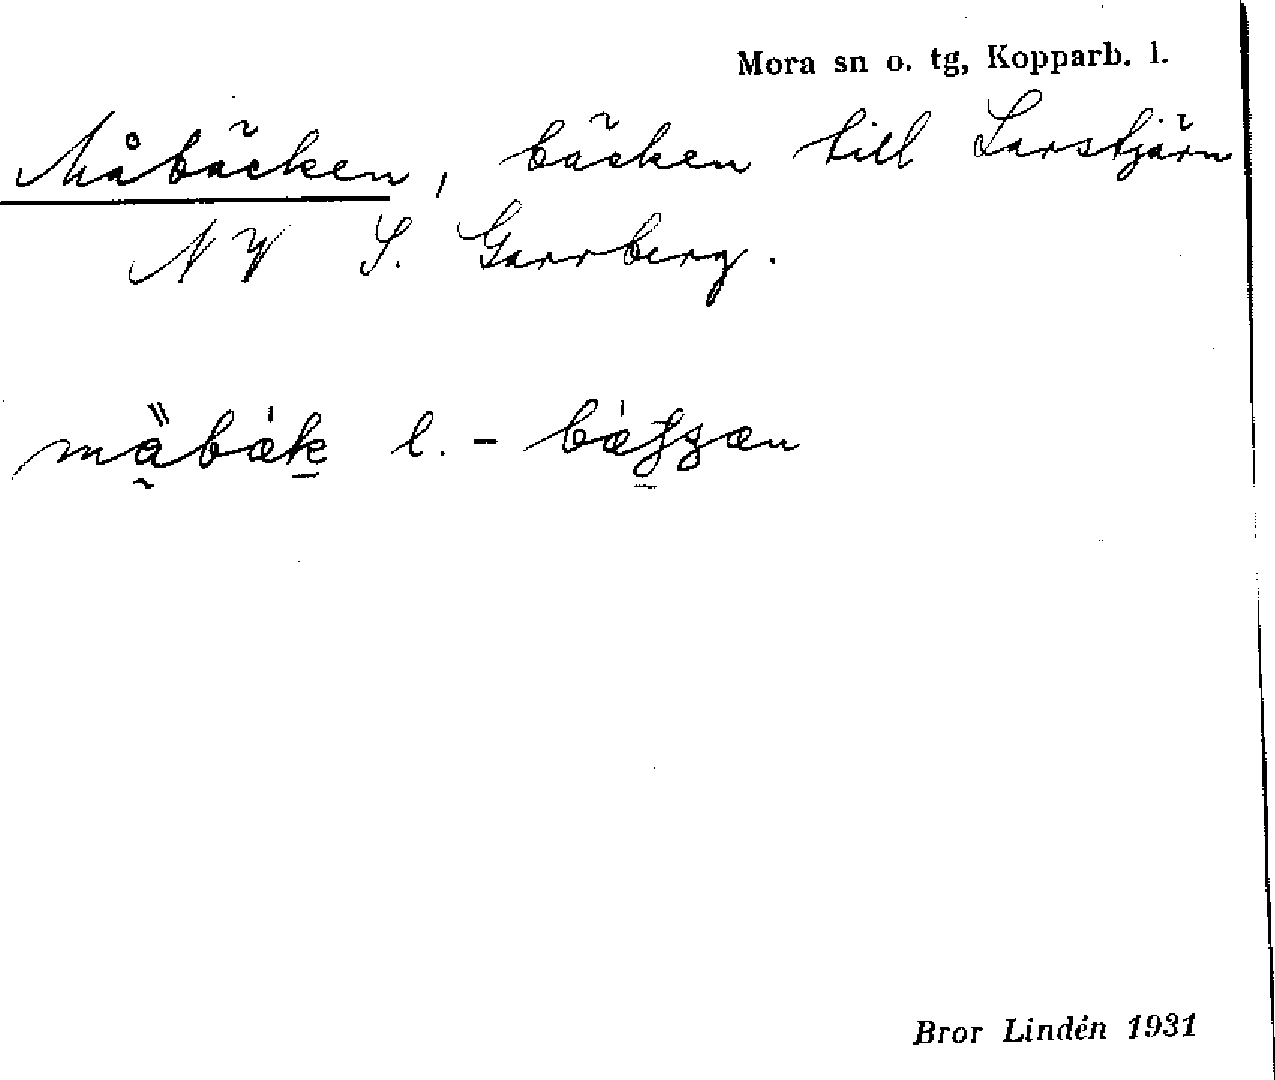 Mora sn o. tg, Kopparb. l.
Måbäcken, bäcken till Larstjärn
NV S. Garrberg.
måbäk l. -
Bror Lindén 1931